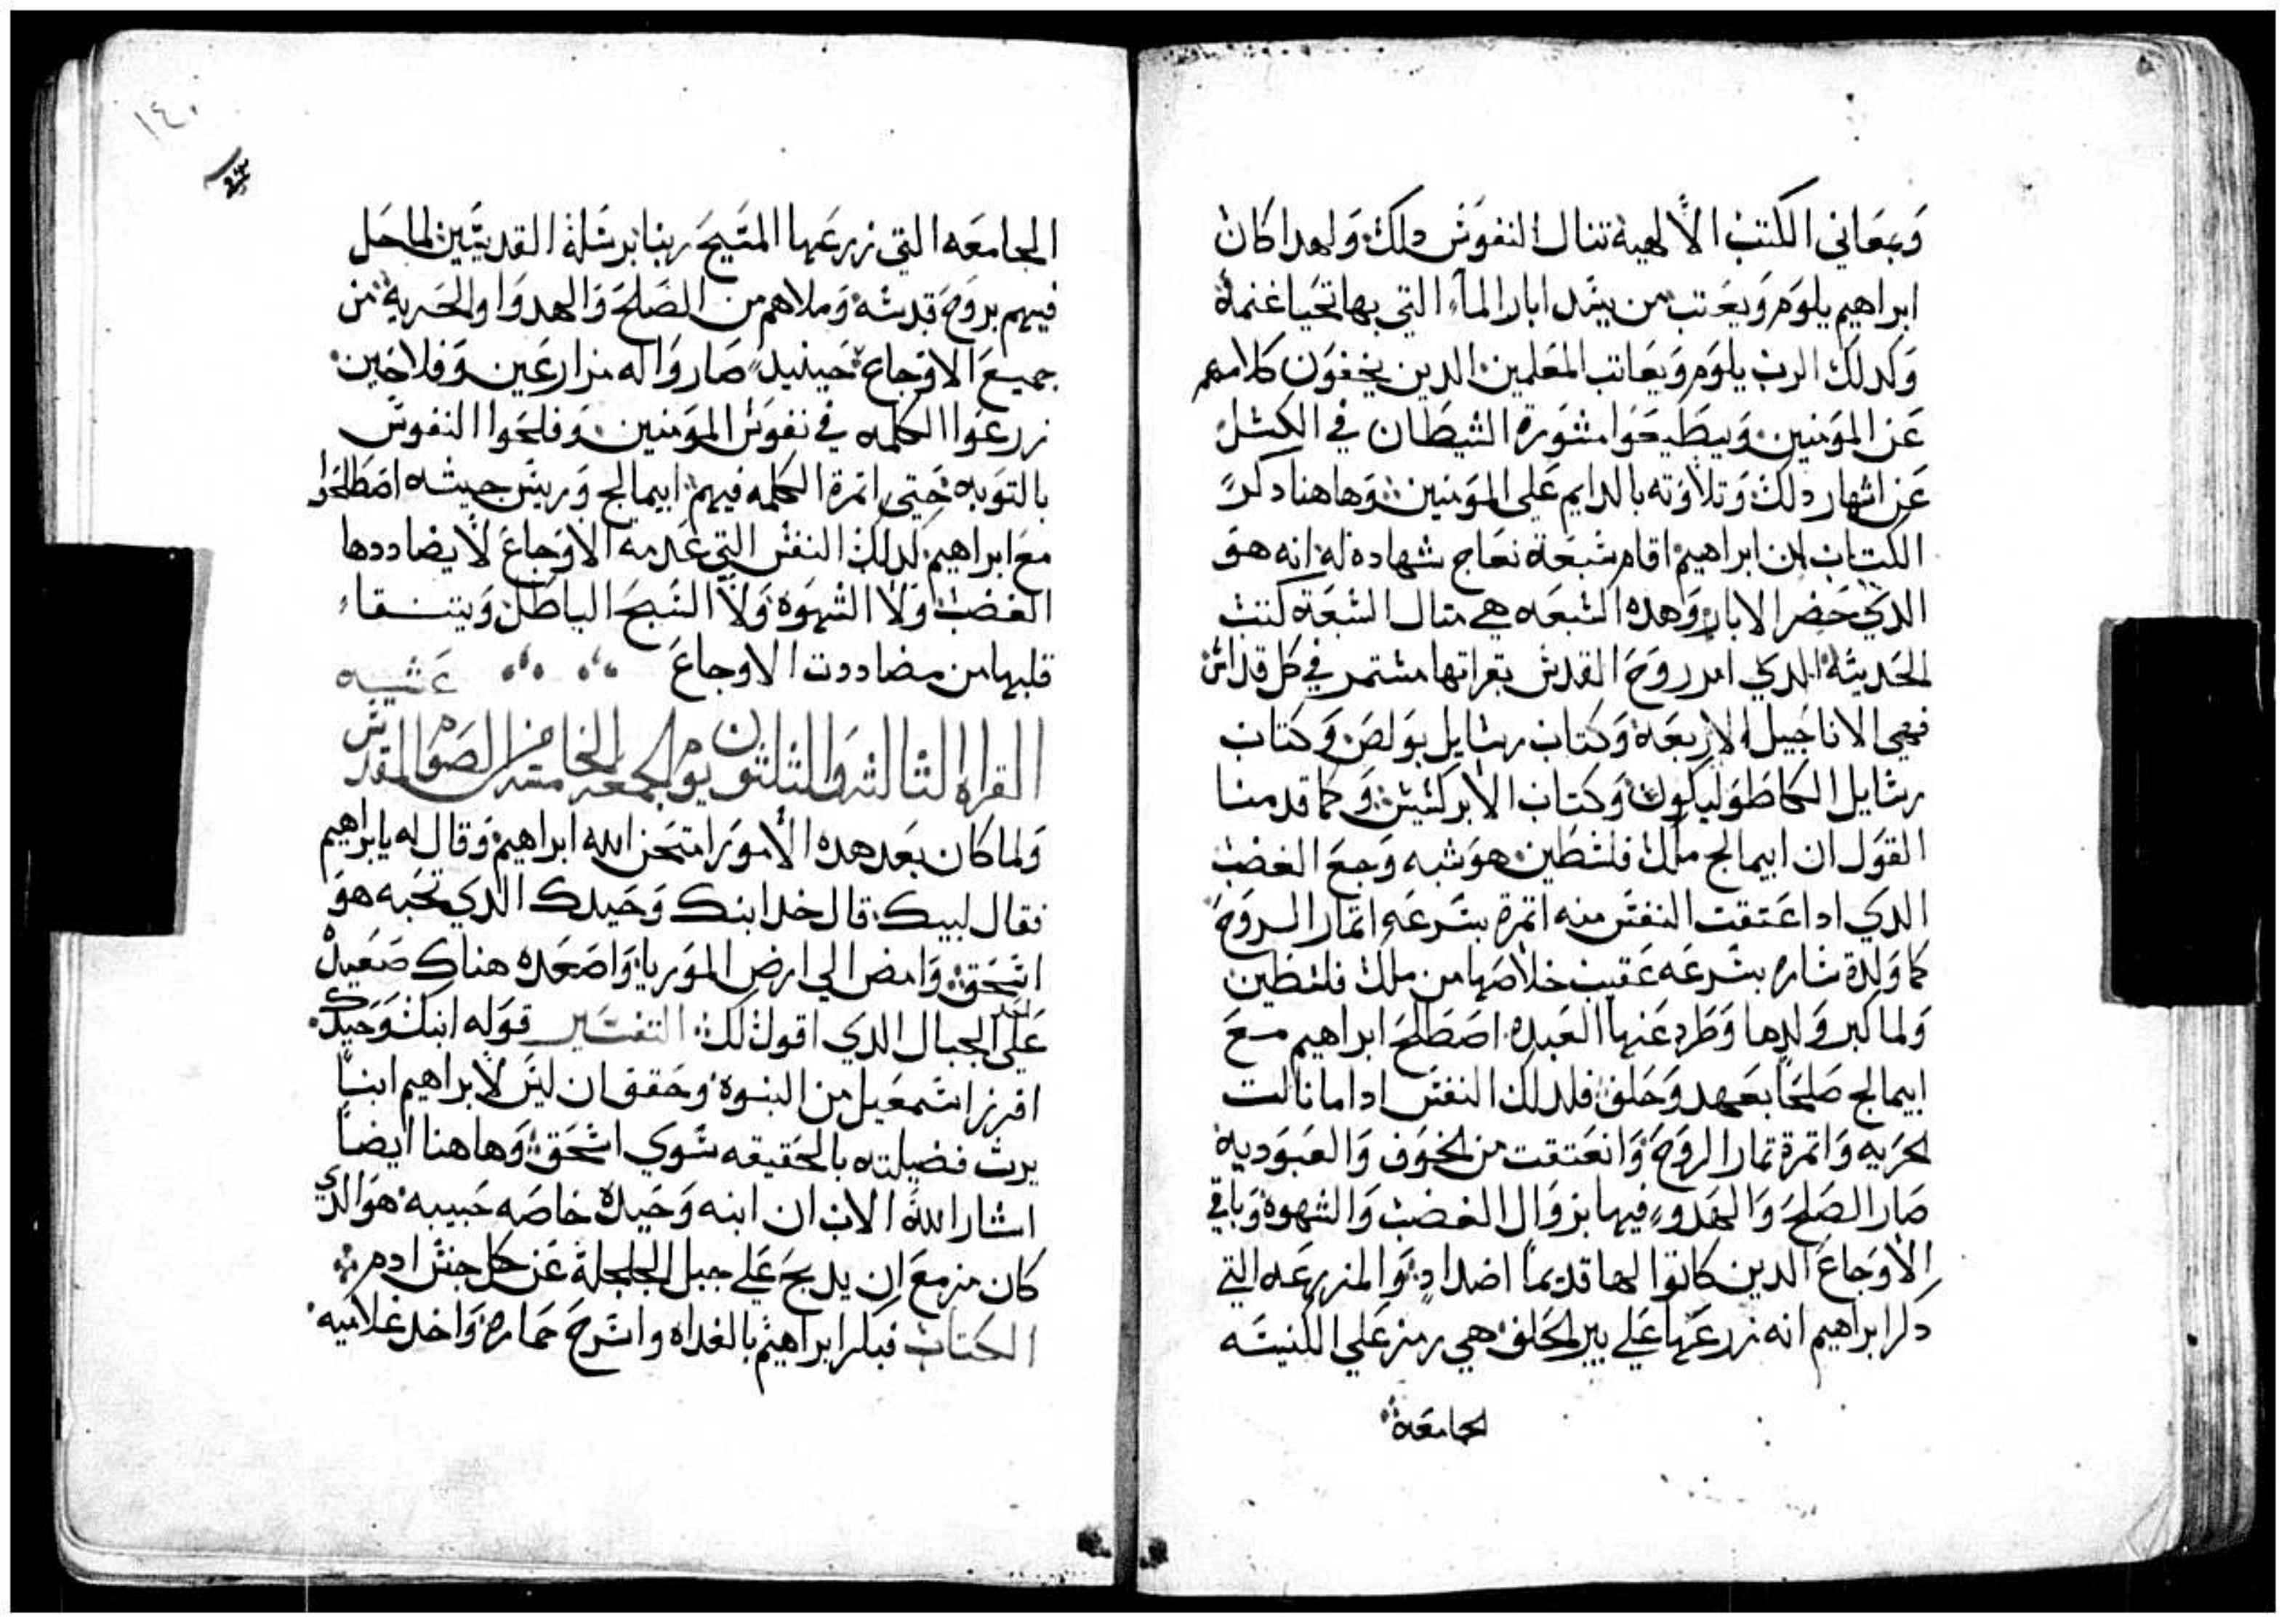 وَبمعَاني الكتب الالهية تنال النفوس دلك وَلهدا كان
ابراهيم يلوم وَيعَتب من يسد ابار الماء التي بها تحيا غنمه
وَكدلك الرب يلوم وَيعَاتب المعَلمين الدين يخفون كلامهم
عَن المومنين وَيطيعَوا مشورة الشيطان في الكسل
عَن اشهار دلك وَتلاوته بالدايم عَلي المومنين وَهاهنا دكر
الكتاب ان ابراهيم اقام سبعَة نعَاج شهاده له انه هو
الدي حَفر الابار وَهده السبعَه هي متال السبعَة كتب
الحَديثة الدي امر روح القدس بقراتها مستمر في كل قداس
فهي الاناجيل الاربعَة وَكتاب رسايل بولص وَكتاب
رسايل الكاطوليكون وَكتاب الابركسيس وَكما قدمنا
القول ان ابيمالج ملك فلسطين هو شبه وَجع الغضب
الدي ادا عَتقت النفس منه اتمرة بسرعَه اتمار الروح
كما وَلدة ساره بسرعَه عَقيب خلاصها من ملك فلسطين
وَلما كبر وَلدها وَطرد عَنها العَبده اصطلح ابراهيم مع
ابيمالج صلحَا بعَهد وَحَلف فلدلك النفس ادا ما نالت
الحريه وَاتمرة تمار الروح وَانعَتقت من الخوف وَالعَبوديه
صار الصلح وَالهدو فيها بزوال الغضب وَالشهوة وَباقي
الاوجاع الدين كانوا لها قديما اضداد وَالمزرعَه التي
دكر ابراهيم انه زرعَها عَلي بير الحلف هي رمز عَلي الكنيسَه
الجامعَة
١٤٠
الجامعَه التي زرعَها المسَيح ربنا برسَلة القديسَين لما حَل
فيهم بروح قدسه وَملاهم من الصلح وَالهدوا والحَرية من
جميع الاوجاع حَينيد صاروا له مزارعَين وَفلاحَين
زرعَوا الكلمه في نفوس المومنين وَفلحَوا النفوس
بالتوبه حَتي اتمرة الكلمه فيهم ابيمالج وَريس جيشه اصطلحَوا
مع ابراهيم لدلك النفس التي عَدمه الاوجاع لا يضاددها
الغضب وَلا الشهوة وَلا السبح الباطل وَيتنقاء
قلبها من مضاددت الاوجاع عَشيه
القراه الثالثه والثلثون يوم الجمعه الخامسه من الصوم المقدس
وَلما كان بعَد هده الامور امتحَن الله ابراهيم وَقال له يابراهيم
فقال لبيك قال خد ابنك وَحَيدك الدي تحَبه هو
اسحَق وَامض الي ارض الموريا وَاصعَده هناك صعَيده
عَلي احد الجبال الدي اقول لك التفسَير قوله ابنك وَحَيدك
افرز اسَمعَيل من البنوة وحَقق ان ليس لابراهيم ابناً
يرث فضيلته بالحَقيقه سَوي اسحَق وَهاهنا ايضاً
اشار الله الاب ان ابنه وَحَيدة خاصه حَبيبه هو الدي
كان مزمع ان يدبح عَلي جبل الجلجلة عَن كل جنس ادم
الكتاب فبكر ابراهيم بالغداه واسرج حَماره وَاخد غلاميه